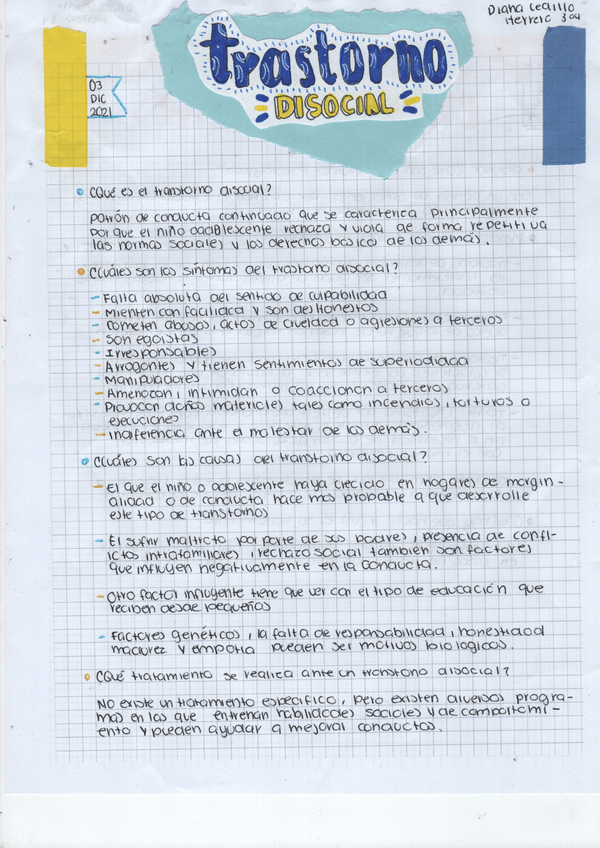 Diana Cedillo
Herrera 304
trastorno
DISOCIAL
03
DIC
2021
¿Qué es el transtorno disocial?
Patrón de conducta continuado que se caracteriza principalmente
por que el niño o adolescente rechaza y viola de forma repetitiva
las normas sociales y los derechos básicos de los demás.
¿Cuáles son los síntomas del trastorno disocial?
- Falta absoluta del sentido de culpabilidad
- Mienten con facilidad y son deshonestos
- Cometen abusos, actos de crueldad o agresiones a terceros
- Son egoístas
- Irresponsables
- Arrogantes y tienen sentimientos de superiodidad
- Manipuladores
- Amenazan, intimidan o coaccionan a terceros
- Provocan daños materiales tales como incendios, torturas o
ejecuciones
- Indiferencia ante el malestar de los demás.
¿Cuáles son las causas del transtorno disocial?
- El que el niño o adolescente haya crecido en hogares de margin-
alidad o de conducta hace mas probable a que desarrolle
este tipo de transtornos
- El sufrir maltrato por parte de sus padres, presencia de confli-
ctos intrafamiliares, rechazo social tambien son factores
que influyen negativamente en la conducta.
- Otro factor influyente tiene que ver con el tipo de educación que
reciben desde pequeños
- Factores genéticos, la falta de responsabilidad, honestidad
madurez y empatia pueden ser motivos biologicos.
¿Qué tratamiento se realiza ante un transtono disocial?
No existe un tratamiento especifico, pero existen diversos progra-
mas en los que entrenan habilidades sociales y de comportami-
ento y pueden ayudar a mejorar conductas.